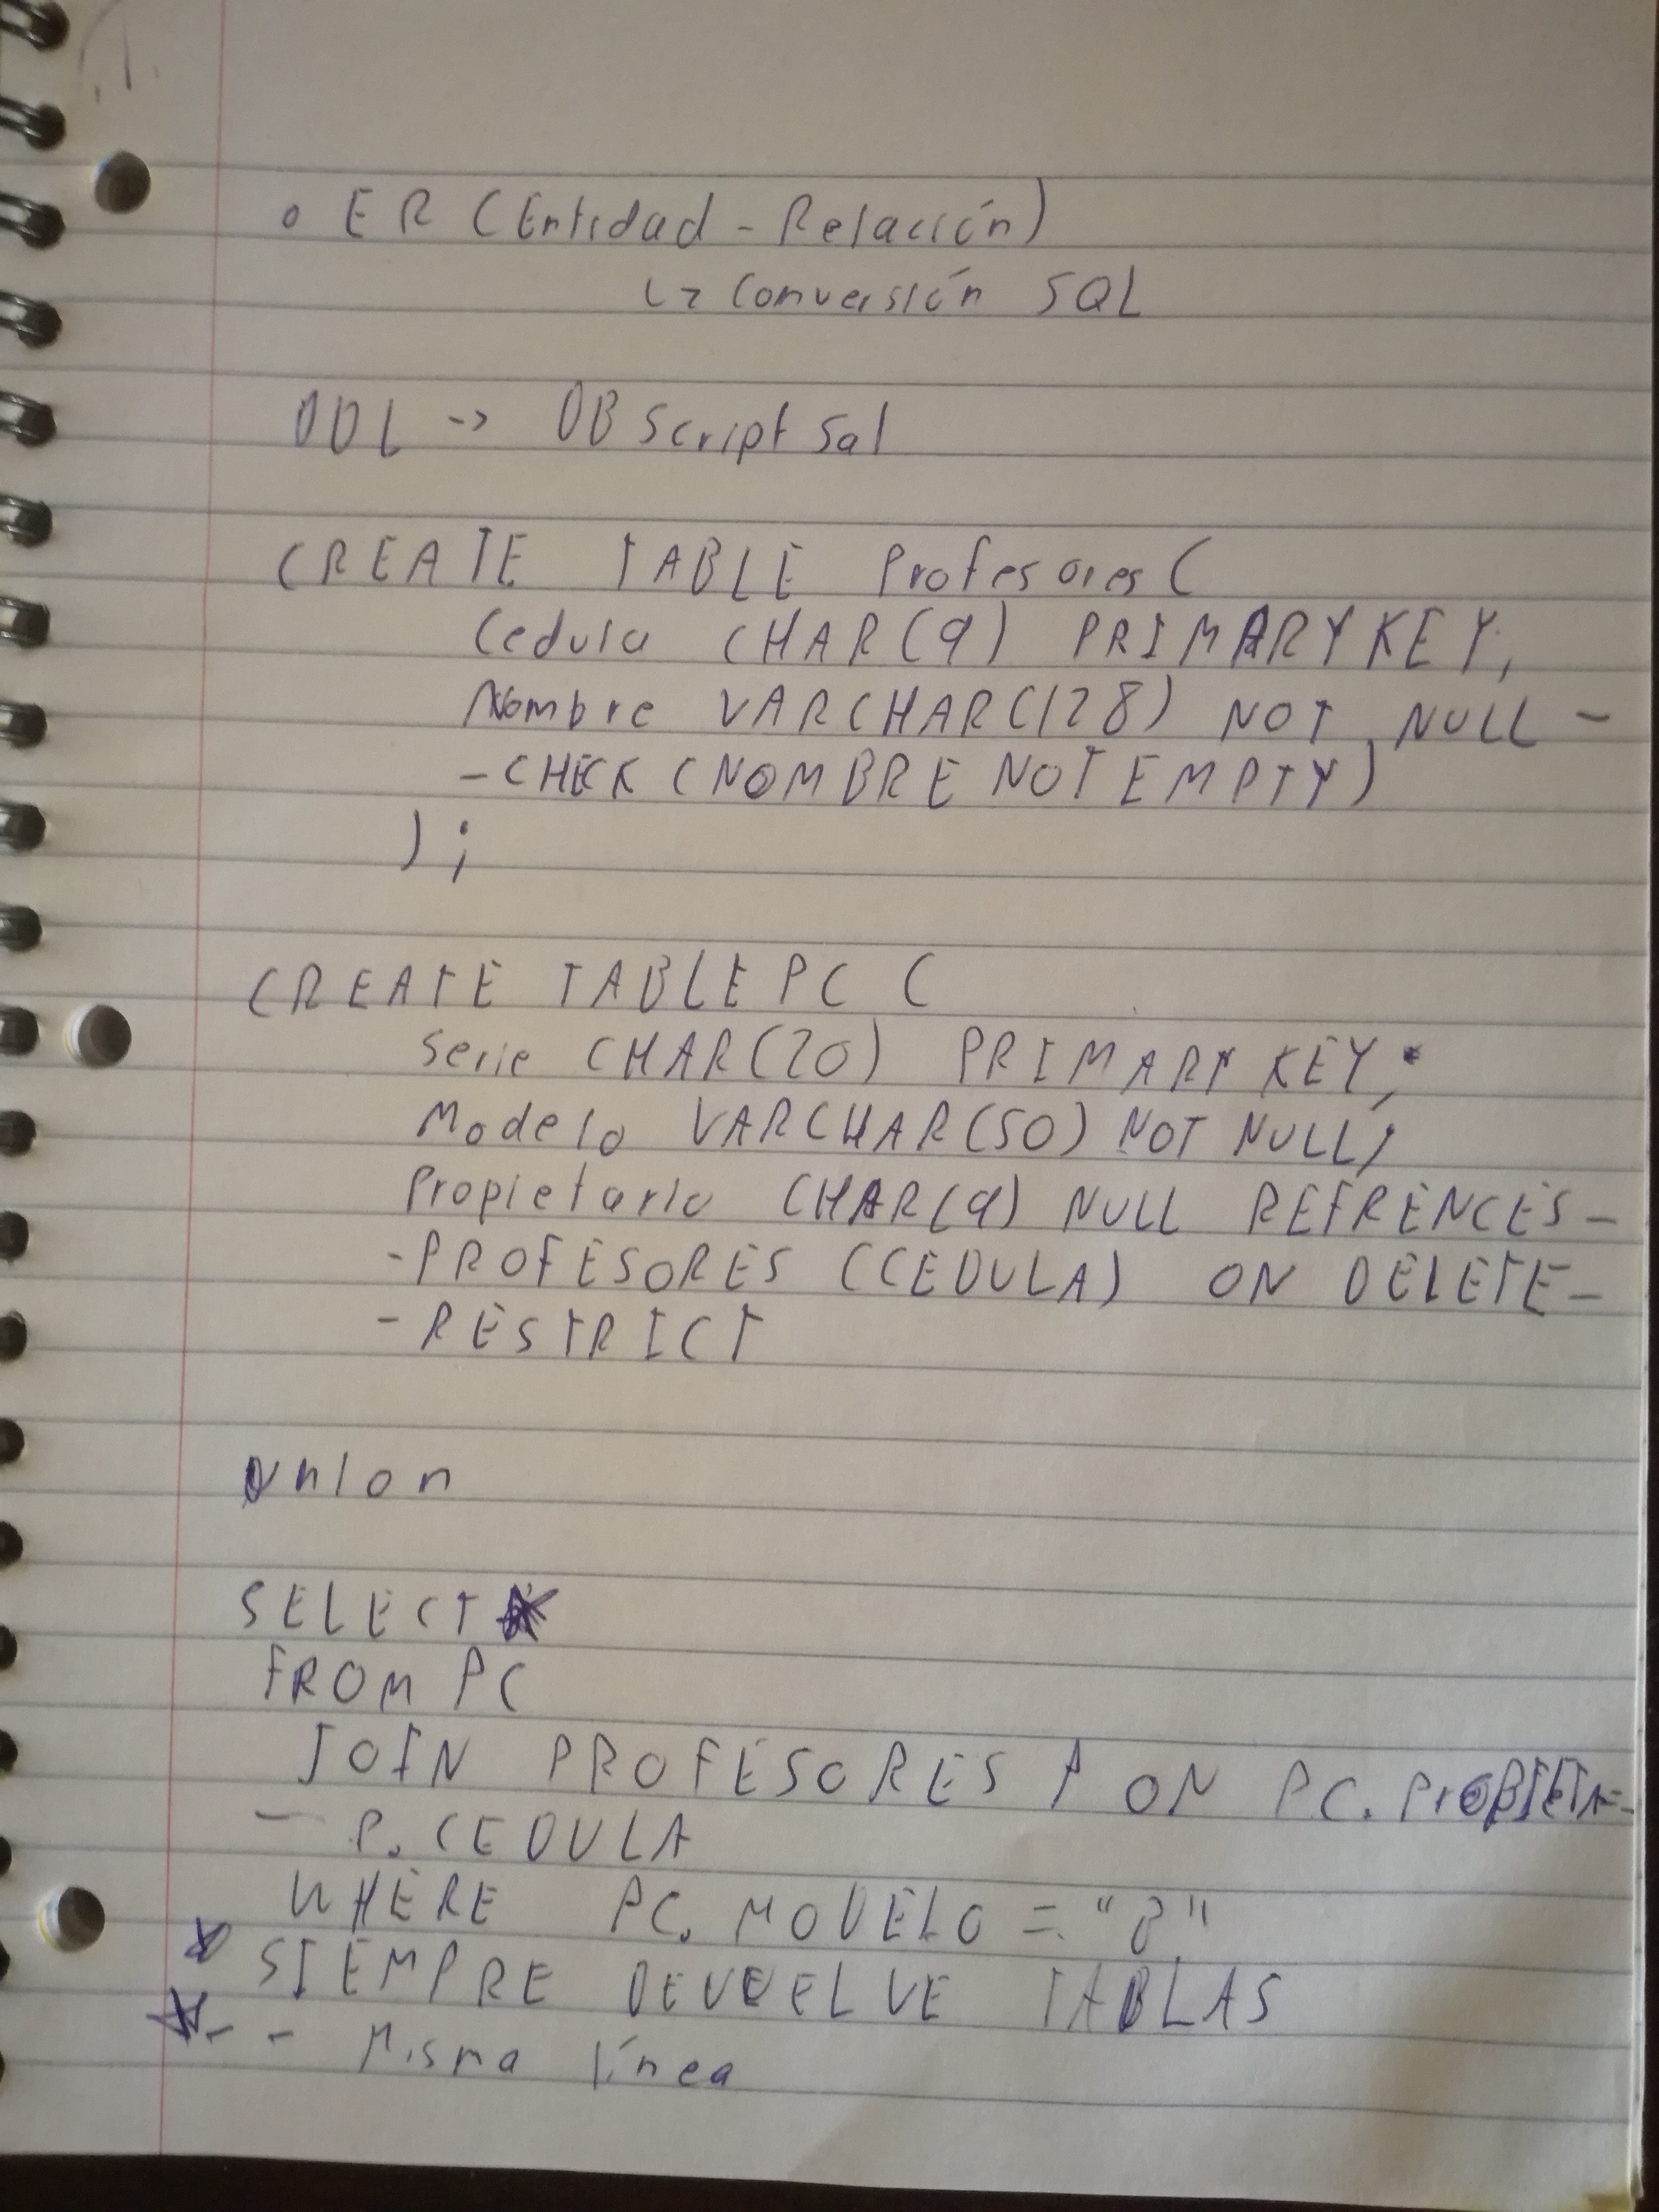 o ER (Entidad - Relación)
↳ Conversión SQL
DDL -> DB Script Sql
CREATE TABLE Profesores (
Cedula CHAR(9) PRIMARY KEY,
Nombre VARCHAR(128) NOT NULL -
- CHECK (NOMBRE NOT EMPTY)
);
CREATE TABLE PC (
Serie CHAR(20) PRIMARY KEY,
Modelo VARCHAR(50) NOT NULL,
Propietario CHAR(9) NULL REFRENCES -
- PROFESORES (CEDULA) ON DELETE -
- RESTRICT
Union
SELECT *
FROM PC
JOIN PROFESORES P ON PC.
- P.CEDULA
WHERE PC.MODELO = "8"
* SIEMPRE DEVUELVE TABLAS
* - - Misma línea